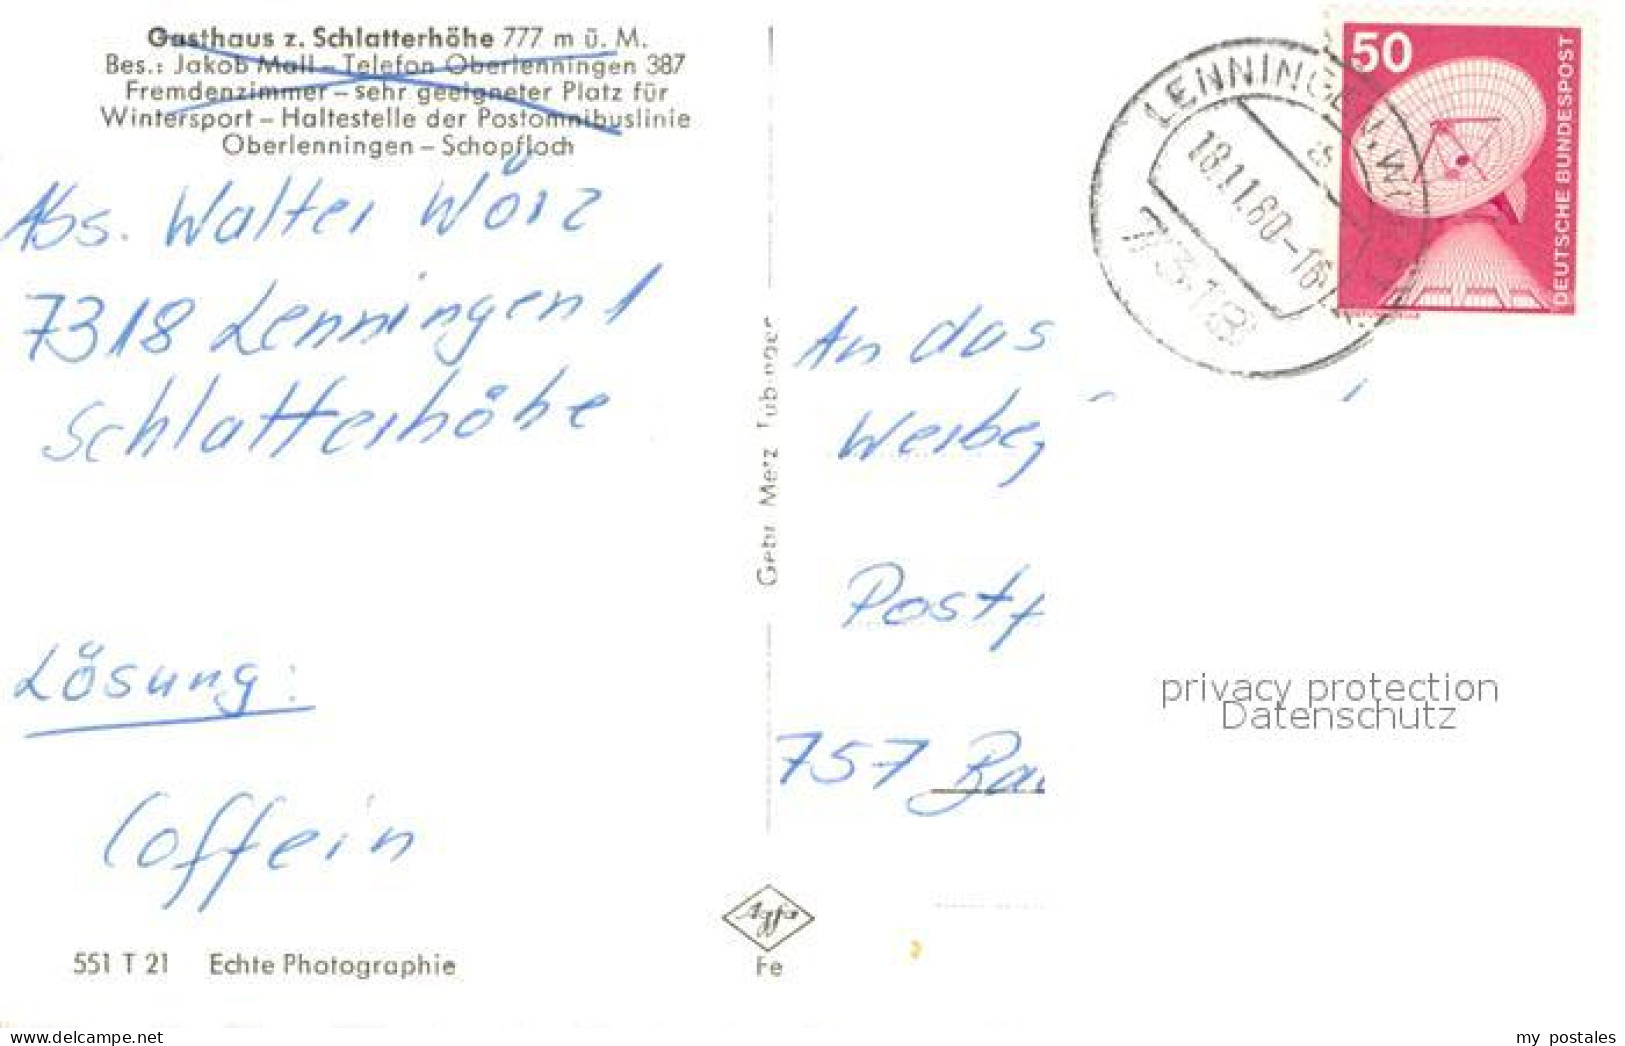 Gasthaus z. Schlatterhöhe 777 m ü. M.
Bes.: Jakob Mall – Telefon Oberlenningen 387
Fremdenzimmer – sehr geeigneter Platz für
Wintersport – Haltestelle der Postomnibuslinie
Oberlenningen – Schopfloch
Abs. Walter Wörz
7318 Lenningen 1
Schlatterhöhe
Lösung:
Coffein
551 T 21 Echte Photographie
Gebr. Metz Tübingen
Agfa
Fe
50
DEUTSCHE BUNDESPOST
LENNINGEN, WÜRTT
18.11.80-16
7318
An das
Werbe
Postf
757 Ba
privacy protection
Datenschutz
delcampe.net
my_postales